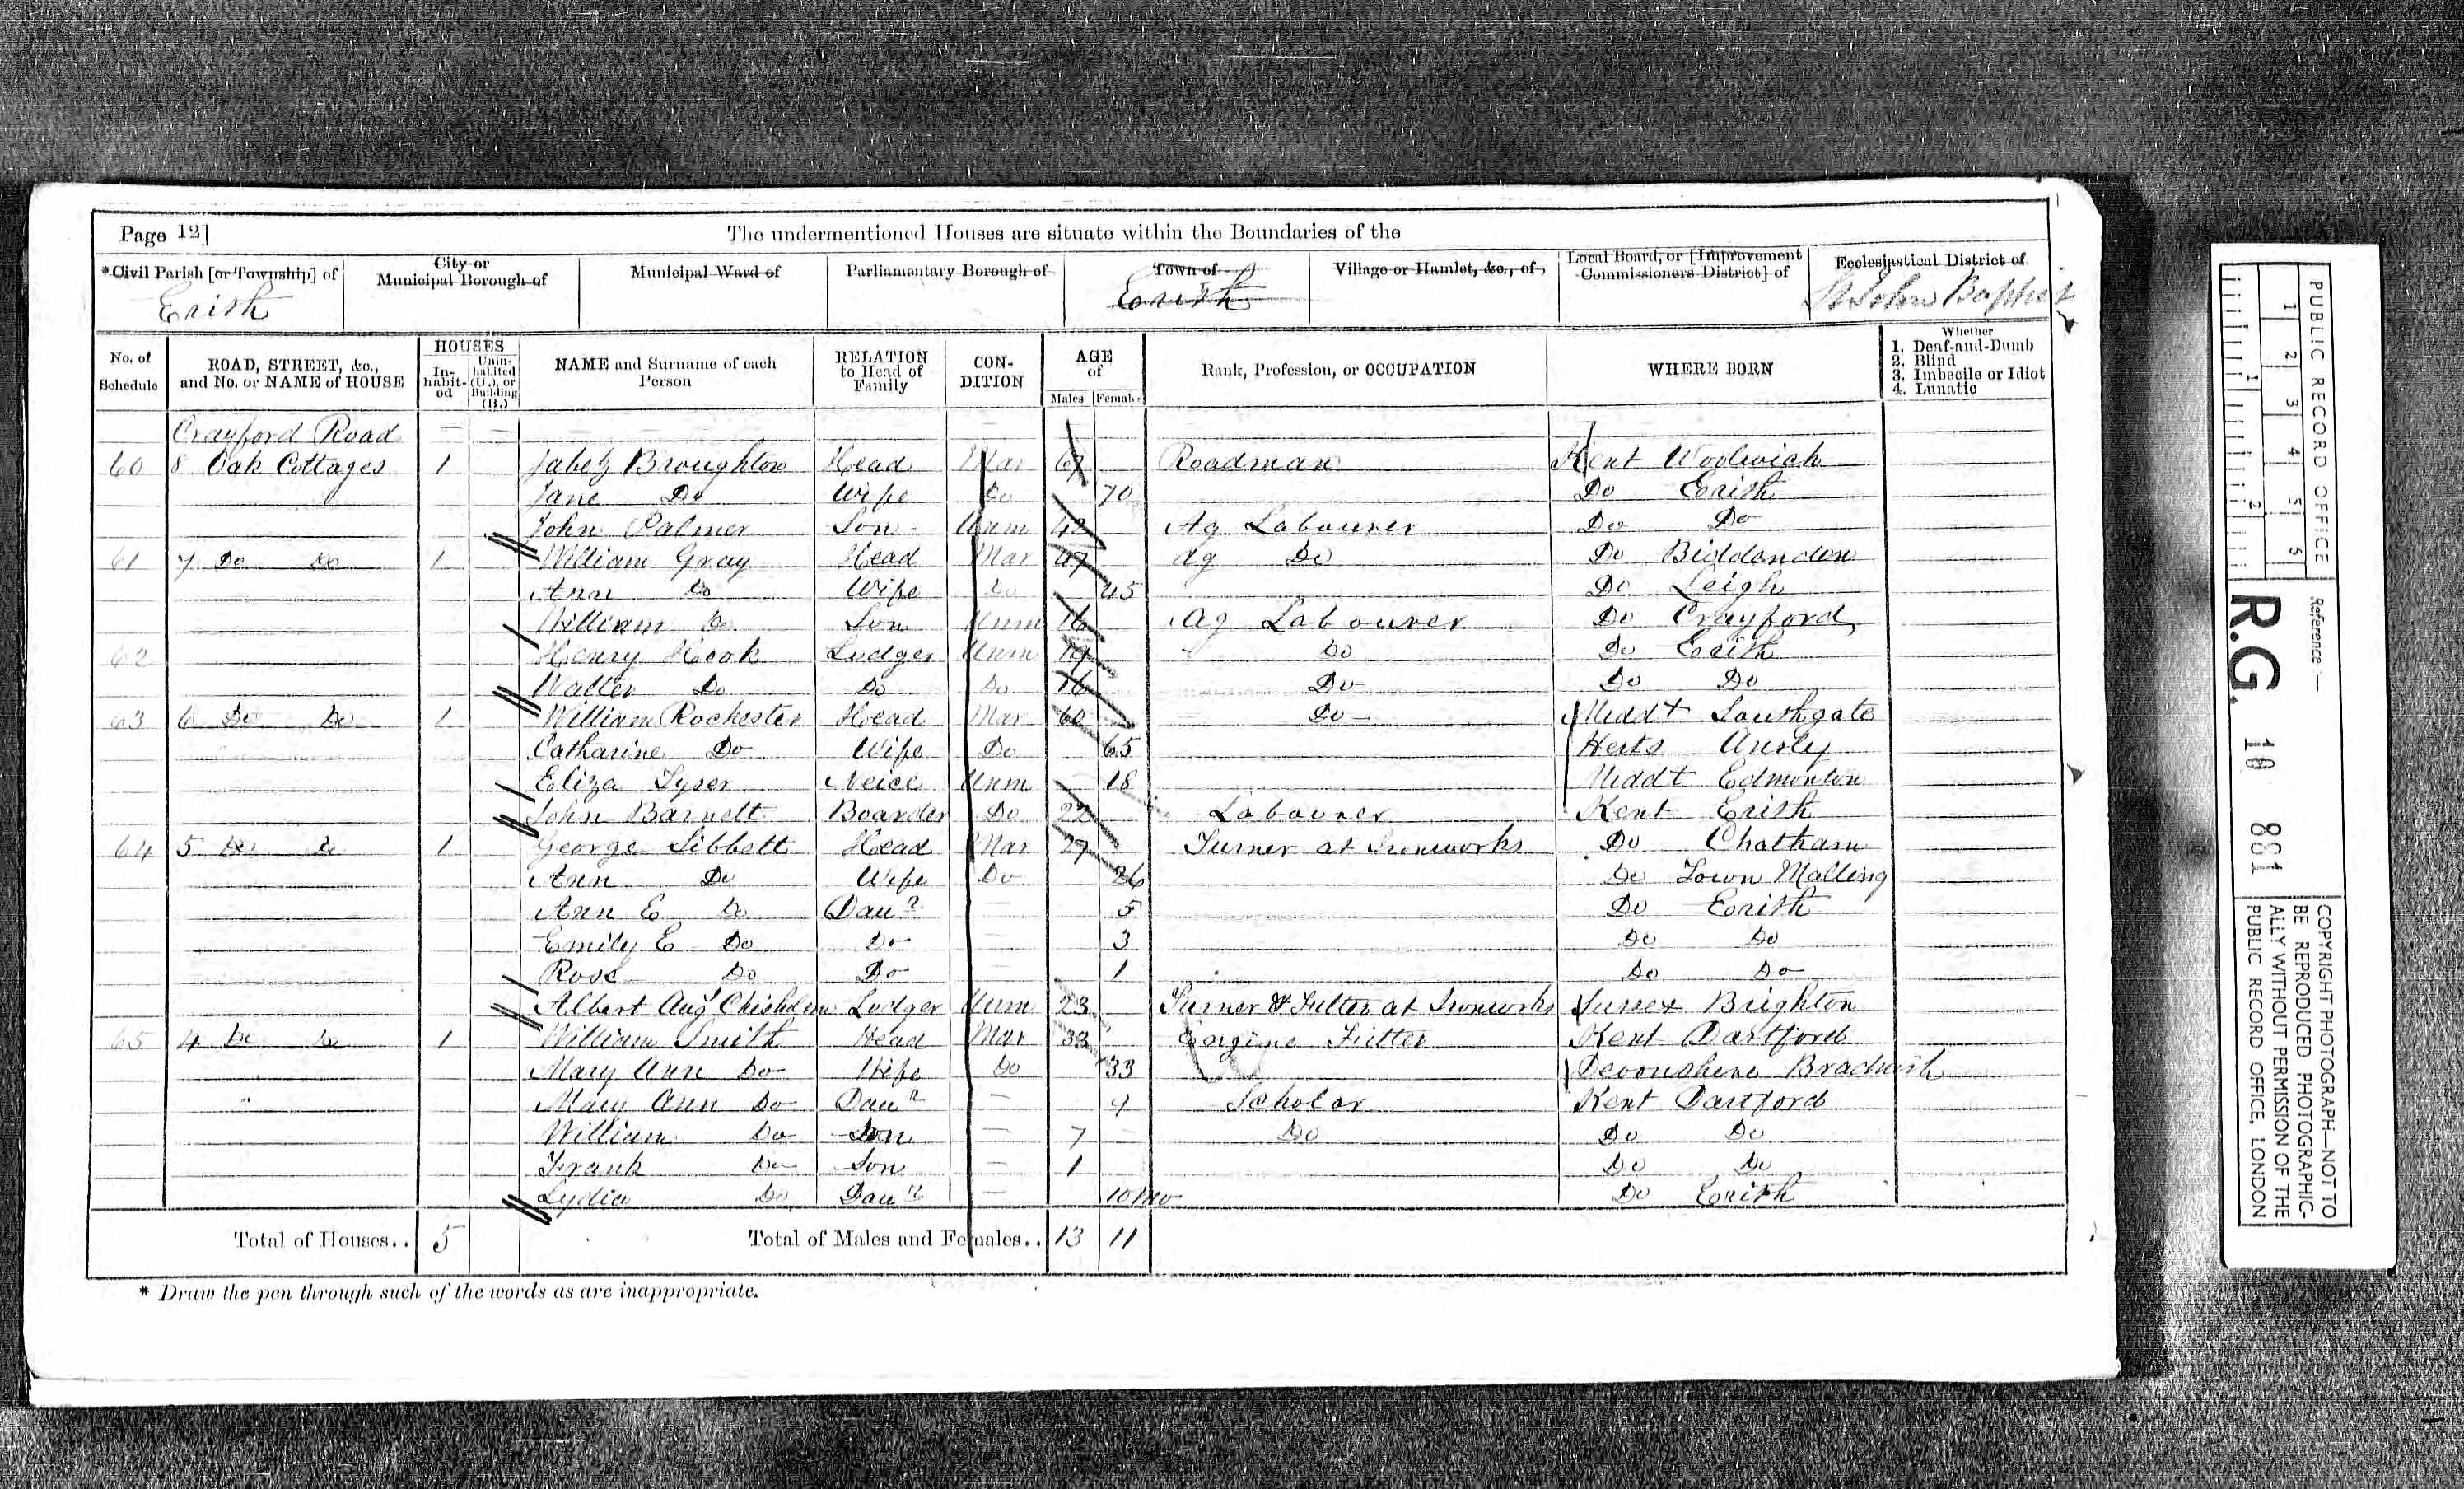 Page 12]
The undermentioned Houses are situate within the Boundaries of the
*Civil Parish [or Township] of
City or Municipal Borough of
Municipal Ward of
Parliamentary Borough of
Town of
Village or Hamlet, &c., of
Local Board, or [Improvement Commissioners District] of
Ecclesiastical District of
Erith
Erith
St John Baptist
No. of Schedule
ROAD, STREET, &c., and No. or NAME of HOUSE
HOUSES
In-habit-ed
Unin-habited (U.), or Building (B.)
NAME and Surname of each Person
RELATION to Head of Family
CON-DITION
AGE of
Males
Females
Rank, Profession, or OCCUPATION
WHERE BORN
Whether
1. Deaf-and-Dumb
2. Blind
3. Imbecile or Idiot
4. Lunatic
Crayford Road
60 8 Oak Cottages 1 Jabez Broughton Head Mar 67 Roadman Kent Woolwich
Jane Do Wife Do 70 Do Erith
John Palmer Son Unm 42 Ag Labourer Do Do
61 7 Do Do 1 William Gray Head Mar 47 Ag Do Do Biddenden
Ann Do Wife Do 45 Do Leigh
William Do Son Unm 16 Ag Labourer Do Crayford
62 Henry Hook Lodger Unm 19 Do Do Erith
Walter Do Do Do 16 Do Do Do
63 6 Do Do 1 William Rochester Head Mar 60 Do Middx Southgate
Catharine Do Wife Do 65 Herts
Eliza Tyser Neice Unm 18 Middx Edmonton
John Barnett Boarder Do 22 Labourer Kent Erith
64 5 Do Do 1 George Sibbett Head Mar 27 Turner at Ironworks Do Chatham
Ann Do Wife Do 26 Do Town Malling
Ann E Do Daur 5 Do Erith
Emily E Do Do 3 Do Do
Rose Do Do 1 Do Do
Albert Augs Chisholm Lodger Unm 23 Turner & Fitter at Ironworks Sussex Brighton
65 4 Do Do 1 William Smith Head Mar 33 Engine Fitter Kent Dartford
Mary Ann Do Wife Do 33 Devonshire
Mary Ann Do Daur 9 Scholar Kent Dartford
William Do Son 7 Do Do Do
Frank Do Son 1 Do Do
Lydia Do Daur 10 mo Do Erith
Total of Houses.. 5 Total of Males and Females.. 13 11
* Draw the pen through such of the words as are inappropriate.
PUBLIC RECORD OFFICE
1 2 3 4 5
1 2
Reference —
R.G. 10 881
COPYRIGHT PHOTOGRAPH—NOT TO
BE REPRODUCED PHOTOGRAPHIC-
ALLY WITHOUT PERMISSION OF THE
PUBLIC RECORD OFFICE, LONDON